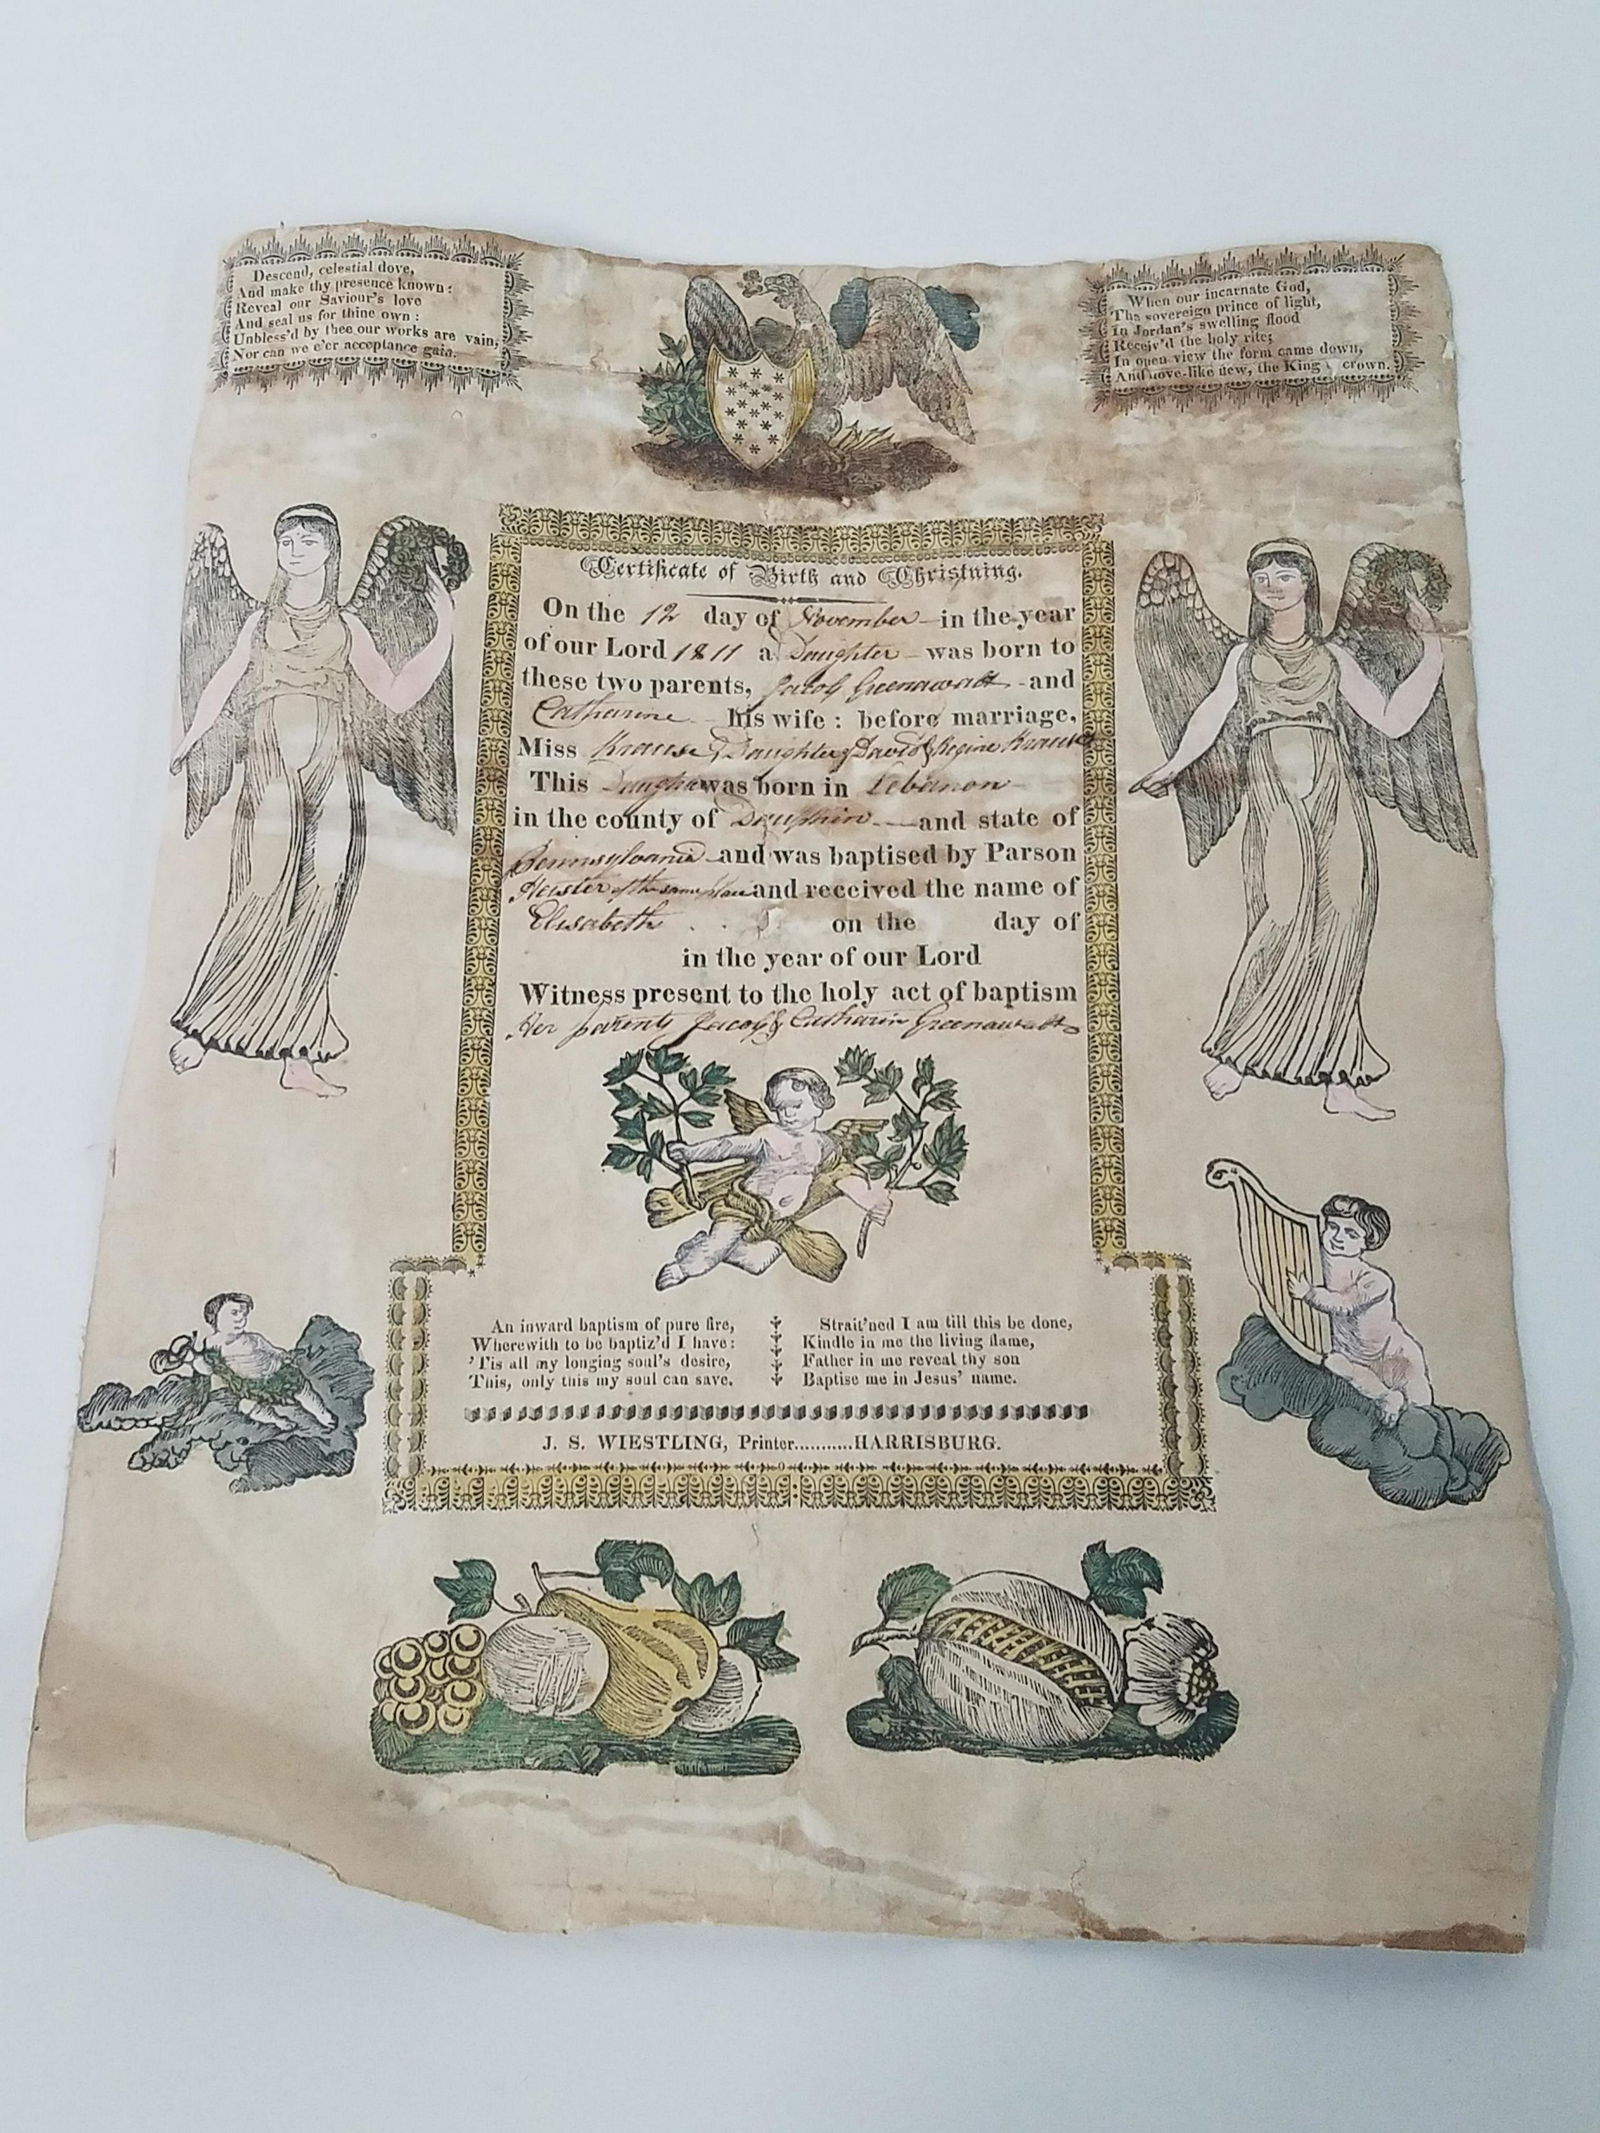 Descend, celestial dove,
And make thy presence known:
Reveal our Saviour's love
And seal us for thine own:
Unbless'd by thee our works are vain,
Nor can we e'er acceptance gain.
When our incarnate God,
The sovereign prince of light,
In Jordan's swelling flood
Receiv'd the holy rite;
In open view the form came down,
And dove-like flew, the King crown.
Certificate of Birth and Christning.
On the 12 day of November in the year
of our Lord 1811 a Daughter was born to
these two parents, Jacob Greenawalt and
Catharine his wife: before marriage,
Miss Krause, Daughter of David & Regine Krause
This Daughter was born in Lebanon
in the county of Dauphin and state of
Pennsylvania and was baptised by Parson
Heister of the same place and received the name of
Elisabeth on the day of
in the year of our Lord
Witness present to the holy act of baptism
Her parents Jacob & Catharin Greenawalt
An inward baptism of pure fire,
Wherewith to be baptiz'd I have:
'Tis all my longing soul's desire,
This, only this my soul can save.
Strait'ned I am till this be done,
Kindle in me the living flame,
Father in me reveal thy son
Baptise me in Jesus' name.
J. S. WIESTLING, Printer...........HARRISBURG.